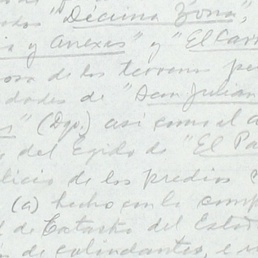 "Décima Zona",
y anexas" y "El Car
de los terrenos pe
dades de "San Julian
(Dgo.) así como el a
del Egido de "El Pa
licie de los predios
(a) hecho con la comp
de Catastro del Esta
de colindantes, e